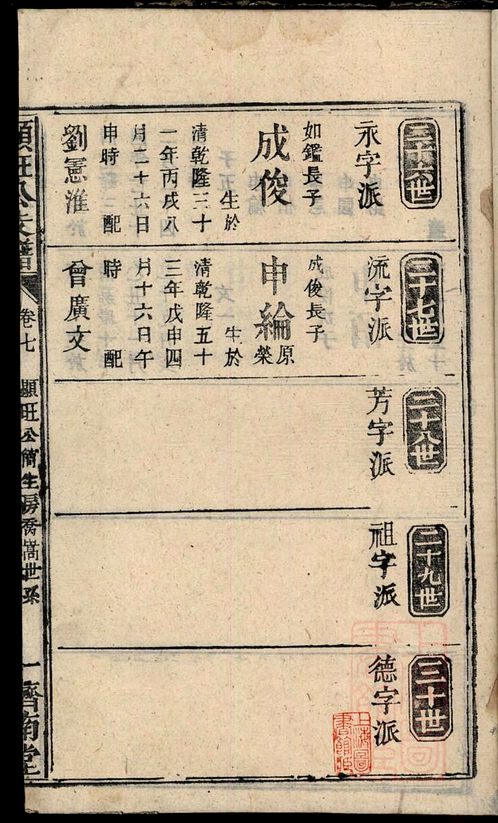 二十六世
永字派
如鑑長子
成俊
生於
清乾隆三十
一年丙戌八
月二十六日
申時 配
劉憲淮
二十七世
流字派
成俊長子
申綸 原榮
生於
清乾隆五十
三年戊申四
月十六日午
時 配
曾廣文
二十八世
芳字派
二十九世
祖字派
三十世
德字派
上海圖書館藏
顯旺公支譜
卷七
顯旺公簡生房喬嵩世系
一
濟南堂